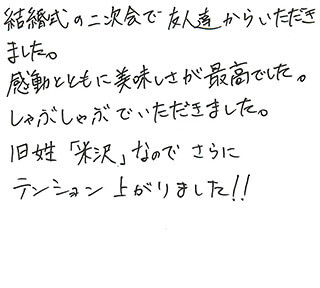 結婚式の二次会で友人達からいただき
ました。
感動とともに美味しさが最高でした。
しゃぶしゃぶでいただきました。
旧姓「米沢」なので さらに
テンション上がりました!!